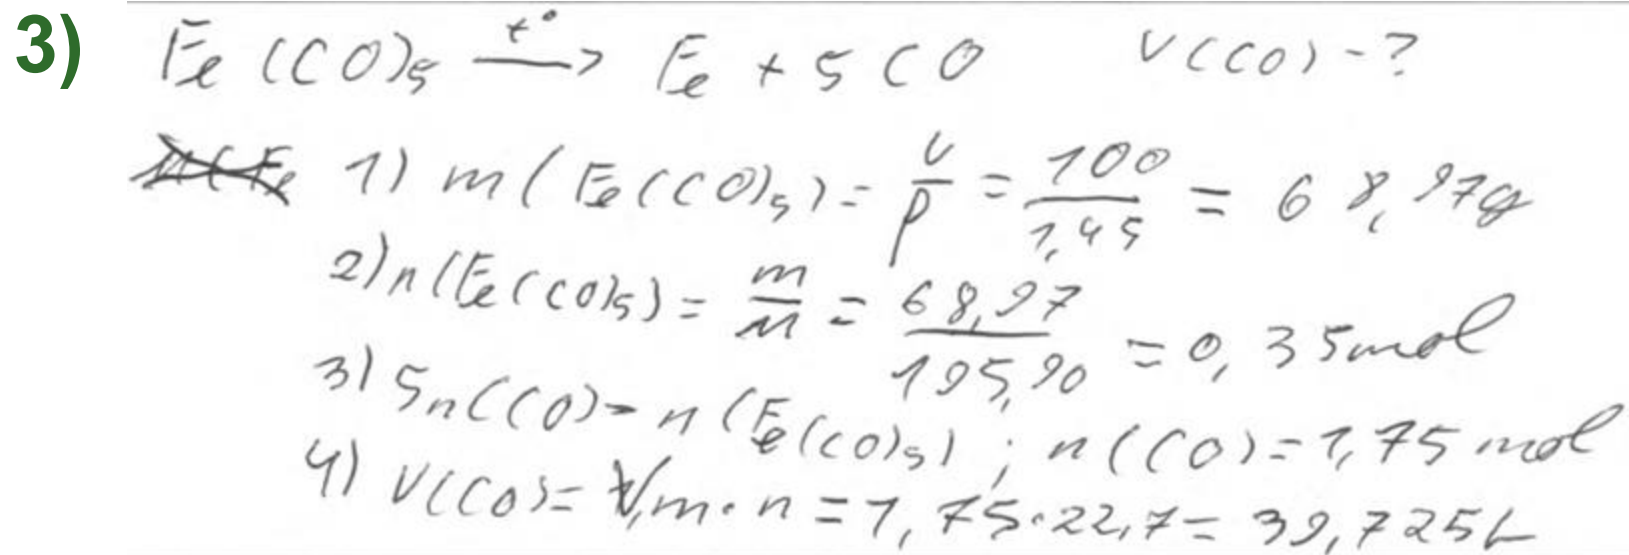 3) Fe(CO)5 t° → Fe + 5CO V(CO) - ?
1) m(Fe(CO)5) = V/ρ = 100/1,45 = 68,97g
2) n(Fe(CO)5) = m/M = 68,97/195,90 = 0,35mol
3) 5n(CO) = n(Fe(CO)5) ; n(CO) = 1,75 mol
4) V(CO) = Vm·n = 1,75·22,7 = 39,725L